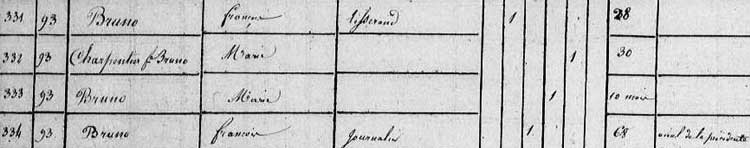 331 93 Bruno françois tisserand 1 28
332 93 Charpentier f Bruno Marie 1 30
333 93 Bruno Marie 1 10 mois
334 93 Bruno françois journalier 1 68 de la précédente